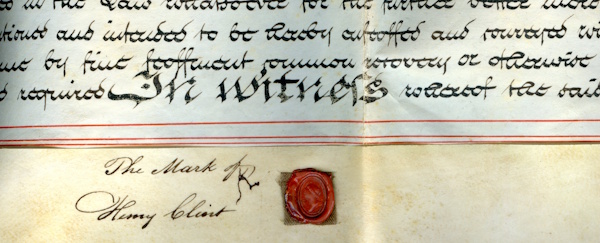 in the Law whatsoever for the further better more
and intended to be hereby enfeoffed and conveyed
by fine feoffment common recovery or otherwise
required In witness whereof the said
The Mark of
Henry Clint